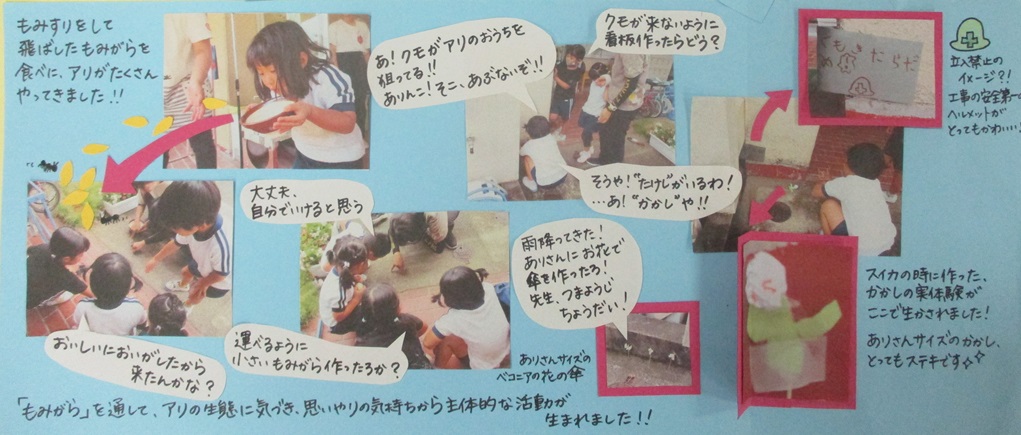 もみすりをして
飛ばしたもみがらを
食べに、アリがたくさん
やってきました!!
あ!クモがアリのおうちを
狙ってる!!
ありんこ!そこ、あぶないぞ!!
クモが来ないように
看板作ったらどう?
くもきたらだ
め
立入禁止の
イメージ?!
工事の安全第一の
ヘルメットが
とってもかわいい!
そうや!"たけじ"がいるわ!
...あ!"かかし"や!!
大丈夫、
自分でいけると思う
雨降ってきた!
ありさんにお花で
傘を作ったろ!
先生、つまようじ
ちょうだい!
おいしいにおいがしたから
来たんかな?
運べるように
小さいもみがら作ったろか?
ありさんサイズの
ベコニアの花の傘
スイカの時に作った、
かかしの実体験が
ここで生かされました!
ありさんサイズのかかし、
とってもステキです
「もみがら」を通して、アリの生態に気づき、思いやりの気持ちから主体的な活動が
生まれました!!